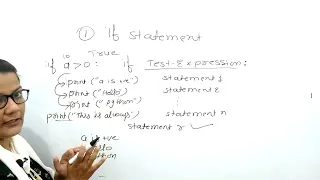 ① If Statement
10 True
if a>0 : if Test-Expression :
print("a is +ve") statement 1
print("Hello") statement 2
print("python") ⋮
print("This is always") statement n
statement x ✓
a is +ve